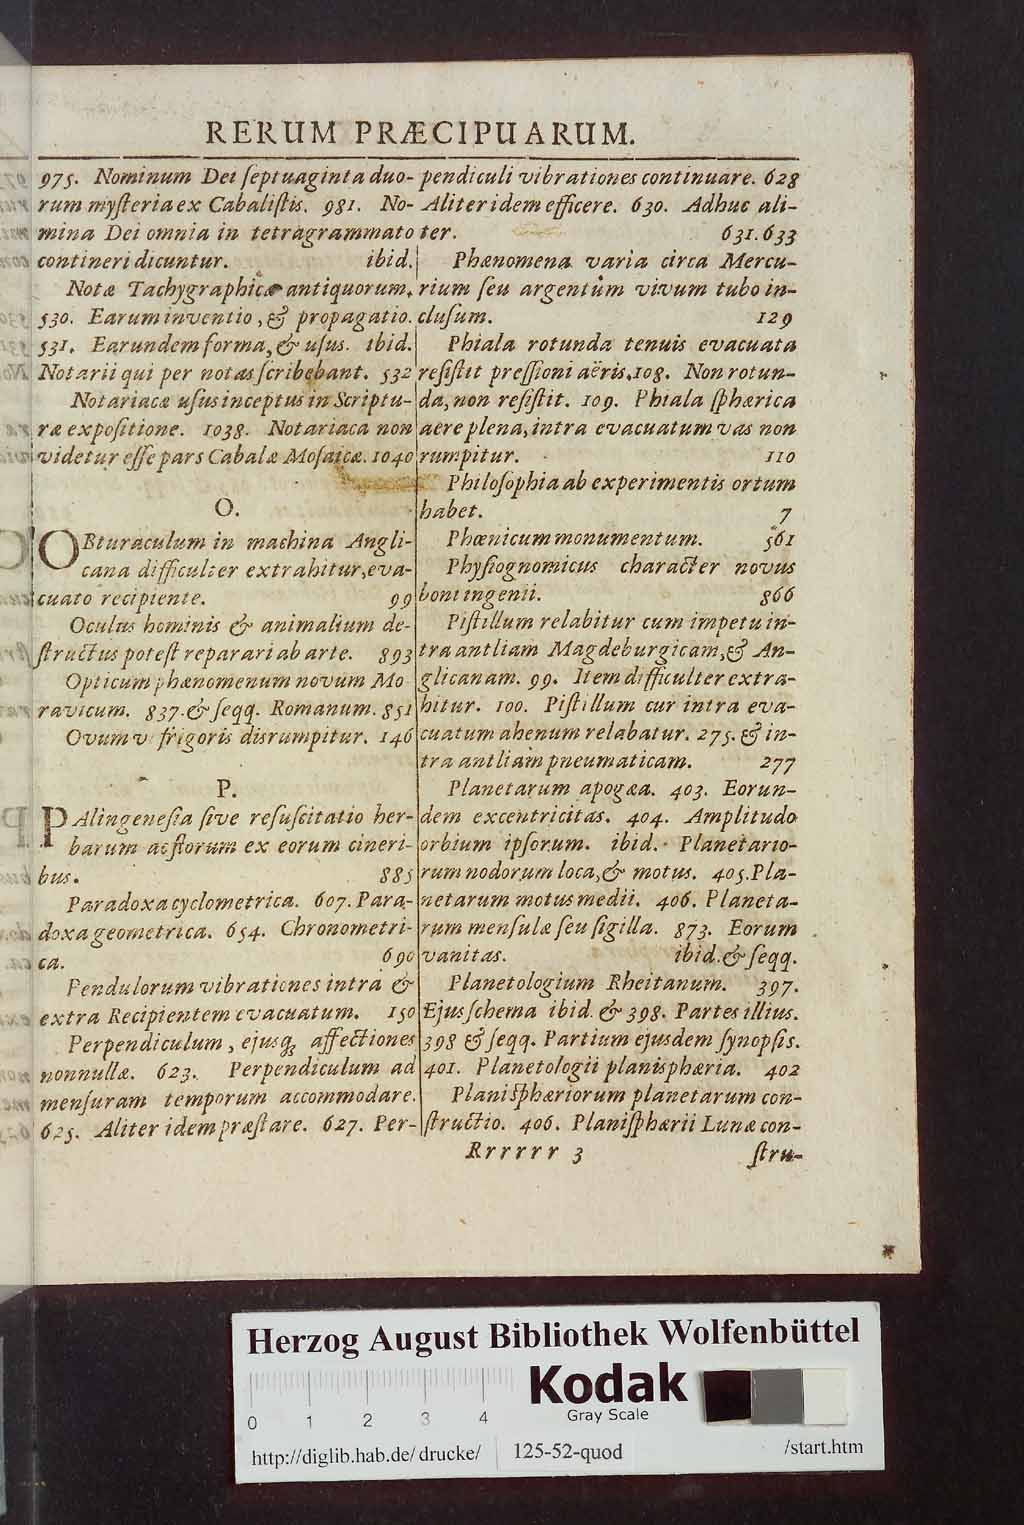 RERUM PRÆCIPUARUM.
975. Nominum Dei ſeptuaginta duo-
rum myſteria ex Cabaliſtis. 981. No-
mina Dei omnia in tetragrammato
contineri dicuntur. ibid.
Notæ Tachygraphicæ antiquorum.
530. Earum inventio, & propagatio.
531. Earundem forma, & uſus. ibid.
Notarii qui per notas ſcribebant. 532
Notariacæ uſus inceptus in Scriptu-
ræ expoſitione. 1038. Notariaca non
videtur eſſe pars Cabalæ Moſaicæ. 1040
O.
OBturaculum in machina Angli-
cana difficulter extrahitur, eva-
cuato recipiente. 99
Oculus hominis & animalium de-
ſtructus poteſt reparari ab arte. 893
Opticum phænomenum novum Mo
ravicum. 837. & ſeqq. Romanum. 851
Ovum vi frigoris disrumpitur. 146
P.
PAlingeneſia ſive reſuſcitatio her-
barum ac florum ex eorum cineri-
bus. 885
Paradoxa cyclometrica. 607. Para-
doxa geometrica. 654. Chronometri-
ca. 690
Pendulorum vibrationes intra &
extra Recipientem evacuatum. 150
Perpendiculum, ejusq; affectiones
nonnullæ. 623. Perpendiculum ad
menſuram temporum accommodare.
625. Aliter idem præſtare. 627. Per-
pendiculi vibrationes continuare. 628
Aliter idem efficere. 630. Adhuc ali-
ter. 631.633
Phænomena varia circa Mercu-
rium ſeu argentum vivum tubo in-
cluſum. 129
Phiala rotunda tenuis evacuata
reſiſtit preſſioni aëris. 108. Non rotun-
da, non reſiſtit. 109. Phiala ſphærica
aere plena, intra evacuatum vas non
rumpitur. 110
Philoſophia ab experimentis ortum
habet. 7
Phœnicum monumentum. 561
Phyſiognomicus character novus
boni ingenii. 866
Piſtillum relabitur cum impetu in-
tra antliam Magdeburgicam, & An-
glicanam. 99. Item difficulter extra-
hitur. 100. Piſtillum cur intra eva-
cuatum ahenum relabatur. 275. & in-
tra antliam pneumaticam. 277
Planetarum apogæa. 403. Eorun-
dem excentricitas. 404. Amplitudo
orbium ipſorum. ibid. Planetario-
rum nodorum loca, & motus. 405. Pla-
netarum motus medii. 406. Planeta-
rum menſulæ ſeu ſigilla. 873. Eorum
vanitas. ibid. & ſeqq.
Planetologium Rheitanum. 397.
Ejus ſchema ibid. & 398. Partes illius.
398 & ſeqq. Partium ejusdem ſynopſis.
401. Planetologii planisphæria. 402
Planiſphæriorum planetarum con-
ſtructio. 406. Planiſphærii Lunæ con-
Rrrrrr 3 ſtru-
Herzog August Bibliothek Wolfenbüttel
Kodak
Gray Scale
0 1 2 3 4
http://diglib.hab.de/drucke/ 125-52-quod /start.htm